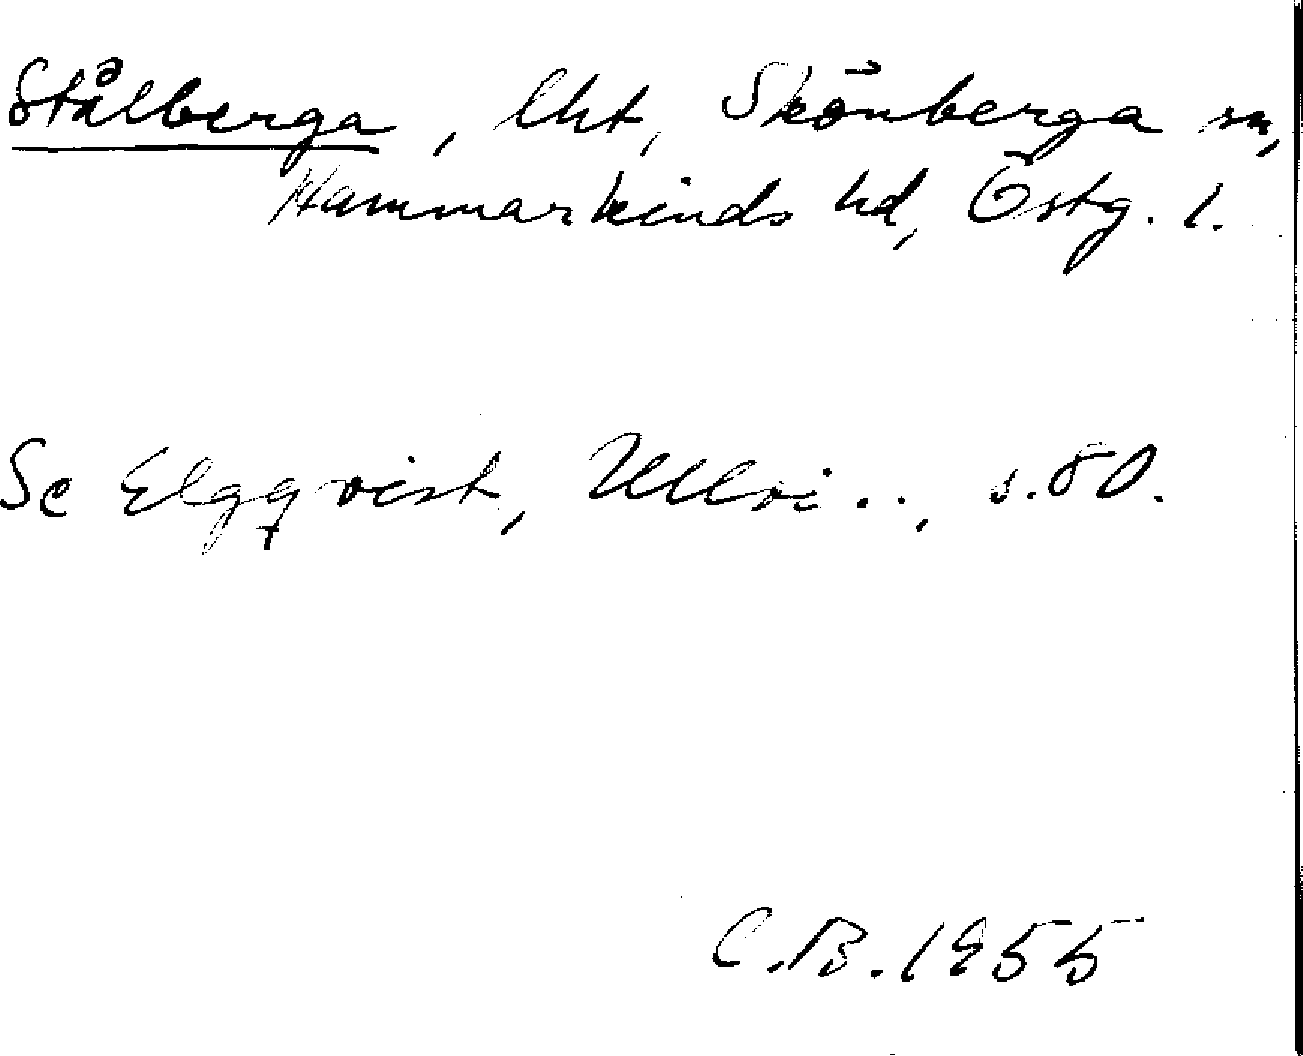 Stålberga, lht, Skönberga sn,
Hammarkinds hd, Östg. l.
Se Elgqvist, Ullvi.., s. 80.
C.B. 1955